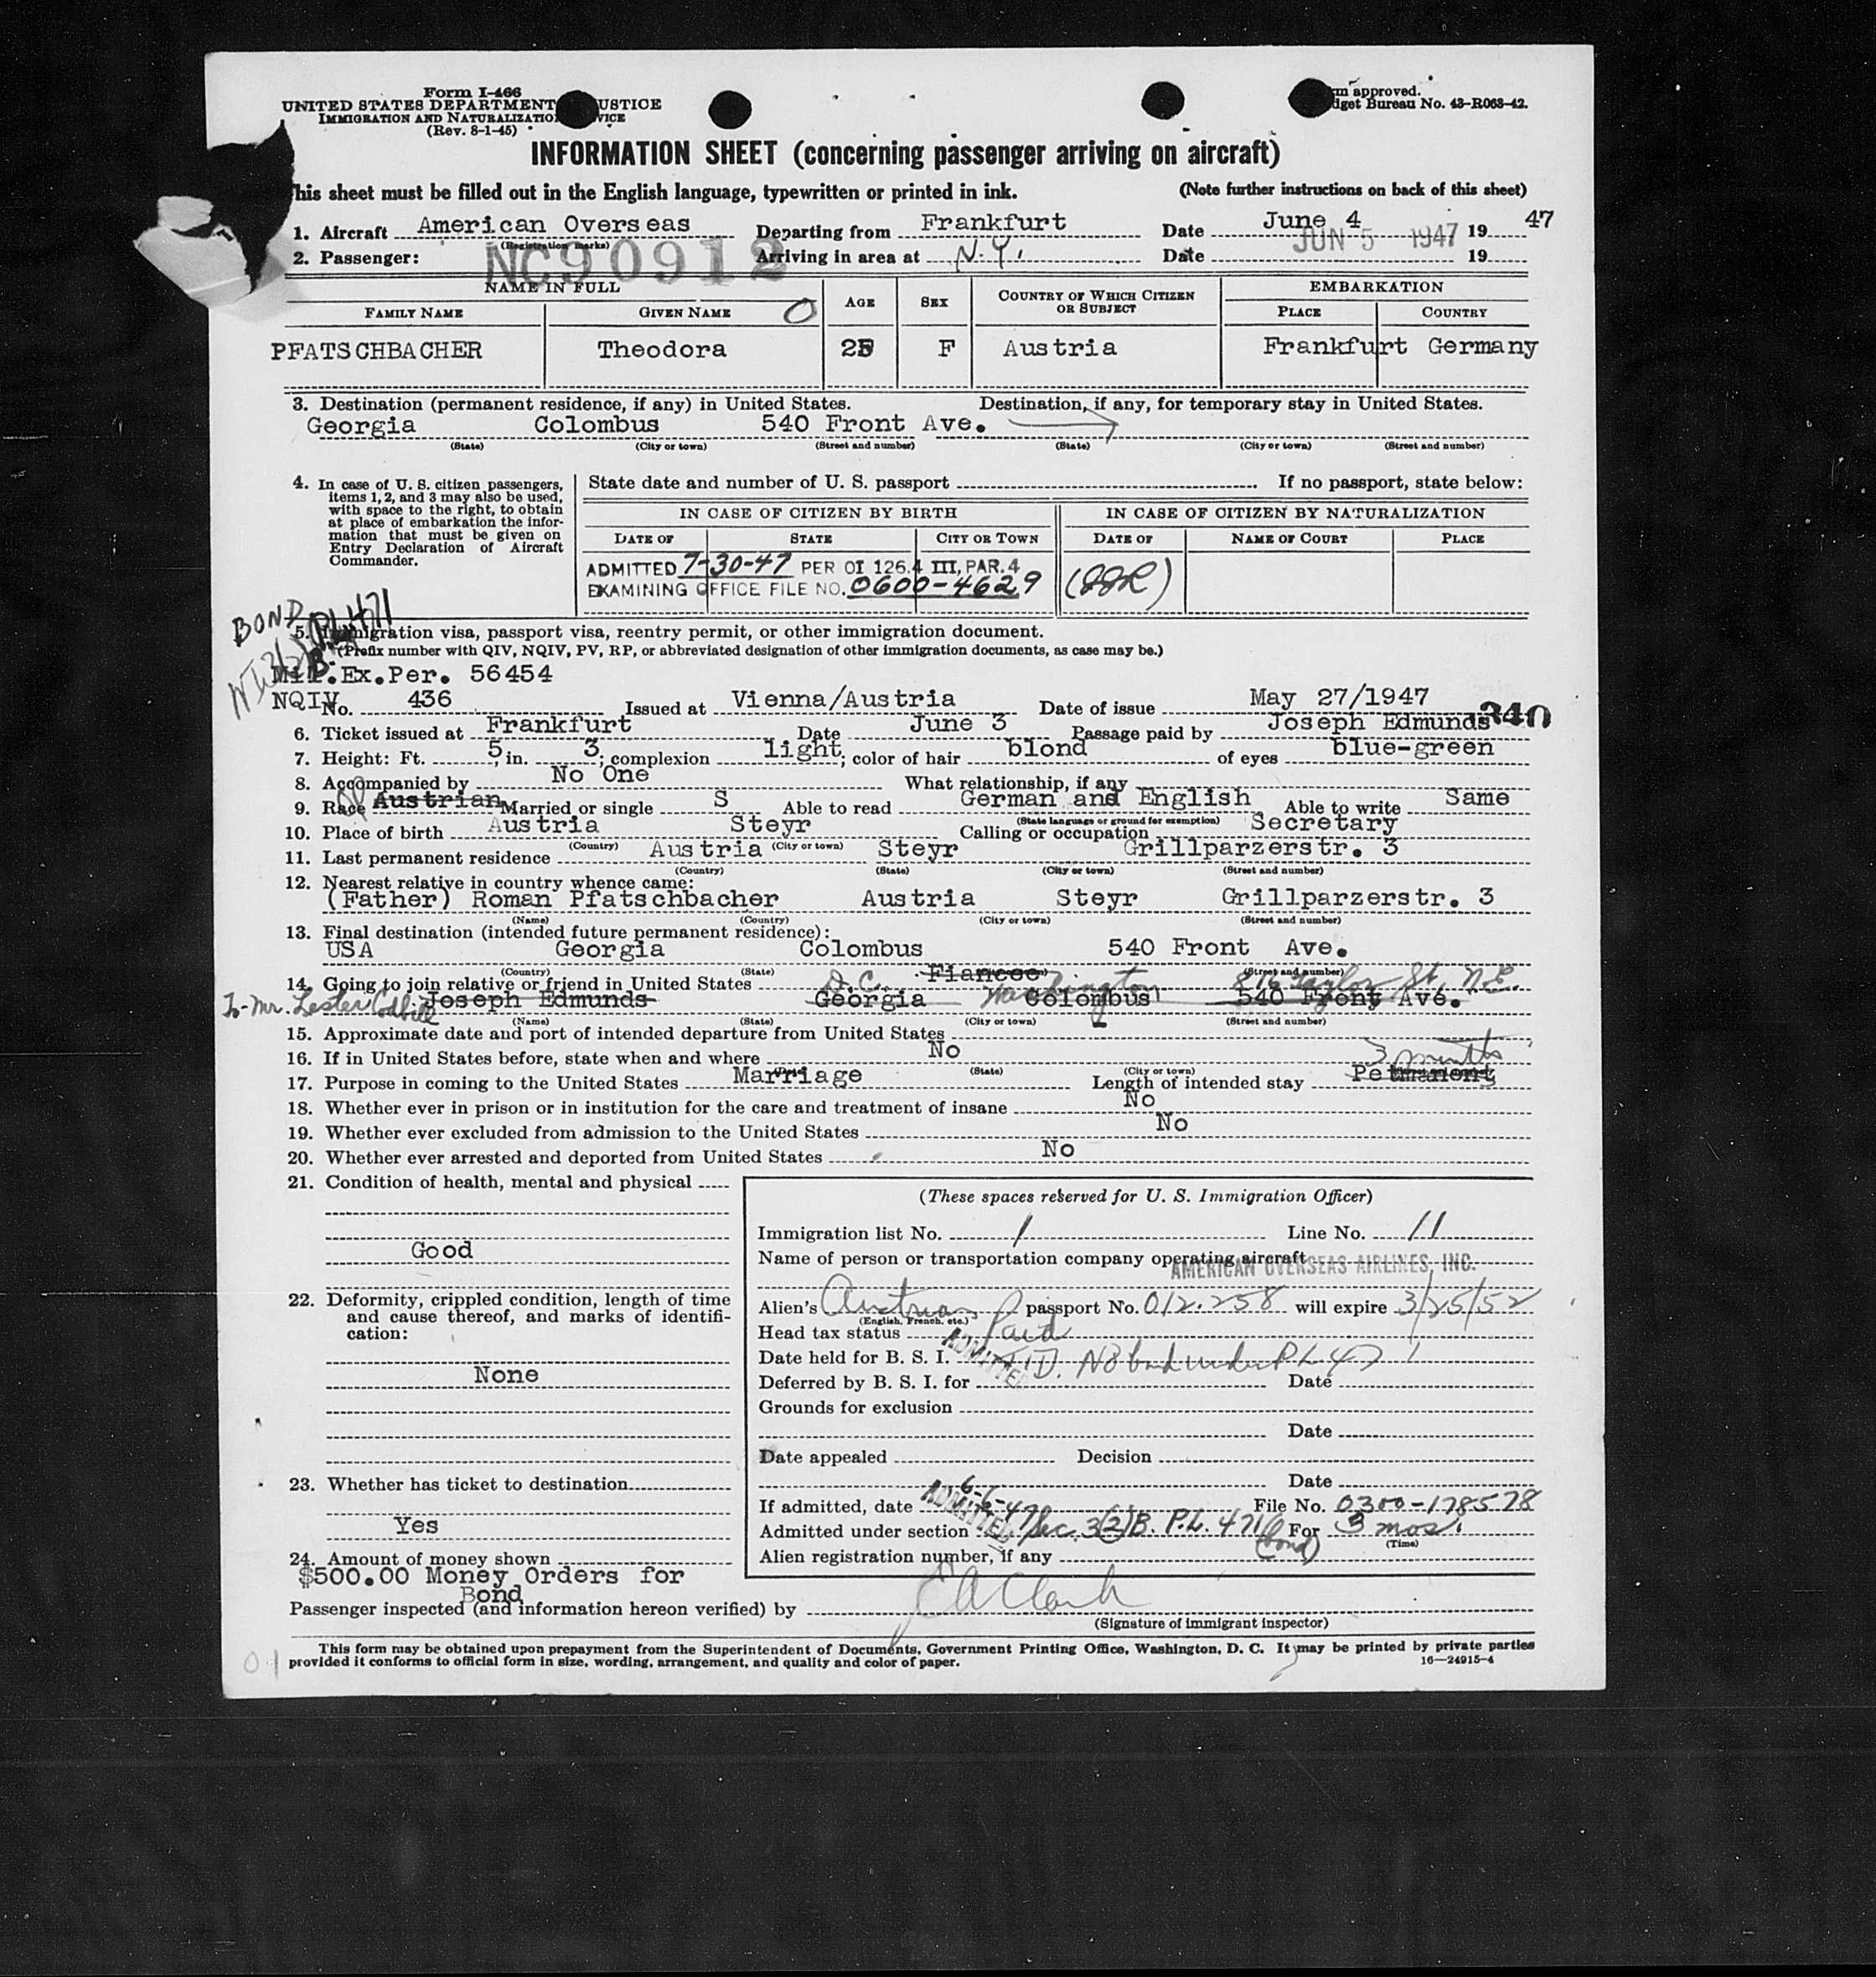 Form I-466
UNITED STATES DEPARTMENT USTICE
IMMIGRATION AND NATURALIZATIO VICE
(Rev. 8-1-45)
m approved.
dget Bureau No. 43-R063-42.
INFORMATION SHEET (concerning passenger arriving on aircraft)
his sheet must be filled out in the English language, typewritten or printed in ink. (Note further instructions on back of this sheet)
1. Aircraft American Overseas Departing from Frankfurt Date June 4 19 47
(Registration marks)
2. Passenger: NC90912 Arriving in area at N.Y. Date JUN 5 1947 19
NAME IN FULL AGE SEX COUNTRY OF WHICH CITIZEN OR SUBJECT EMBARKATION
FAMILY NAME GIVEN NAME PLACE COUNTRY
PFATSCHBACHER Theodora F Austria Frankfurt Germany
3. Destination (permanent residence, if any) in United States. Destination, if any, for temporary stay in United States.
Georgia Colombus 540 Front Ave.
(State) (City or town) (Street and number) (State) (City or town) (Street and number)
4. In case of U. S. citizen passengers, items 1, 2, and 3 may also be used, with space to the right, to obtain at place of embarkation the information that must be given on Entry Declaration of Aircraft Commander.
State date and number of U. S. passport If no passport, state below:
IN CASE OF CITIZEN BY BIRTH IN CASE OF CITIZEN BY NATURALIZATION
DATE OF STATE CITY OR TOWN DATE OF NAME OF COURT PLACE
ADMITTED 7-30-47 PER OI 126.4 III, PAR. 4
EXAMINING OFFICE FILE NO. 0600-4629
BOND
5. Immigration visa, passport visa, reentry permit, or other immigration document.
(Prefix number with QIV, NQIV, PV, RP, or abbreviated designation of other immigration documents, as case may be.)
Mil.Ex.Per. 56454
NQIV No. 436 Issued at Vienna/Austria Date of issue May 27/1947
340
6. Ticket issued at Frankfurt Date June 3 Passage paid by Joseph Edmunds
7. Height: Ft. 5, in. 3; complexion light; color of hair blond of eyes blue-green
8. Accompanied by No One What relationship, if any
9. Race Austrian Married or single S Able to read German and English Able to write Same
(State language or ground for exemption)
10. Place of birth Austria Steyr Calling or occupation Secretary
(Country) (City or town)
11. Last permanent residence Austria Steyr Grillparzerstr. 3
(Country) (State) (City or town) (Street and number)
12. Nearest relative in country whence came:
(Father) Roman Pfatschbacher Austria Steyr Grillparzerstr. 3
(Name) (Country) (City or town) (Street and number)
13. Final destination (intended future permanent residence):
USA Georgia Colombus 540 Front Ave.
(Country) (State) (City or town) (Street and number)
14. Going to join relative or friend in United States Fiancee D.C. Washington 816 Taylor St. N.E.
To- Mr. Lester Joseph Edmunds Georgia Colombus 540 Front Ave.
(Name) (State) (City or town) (Street and number)
15. Approximate date and port of intended departure from United States
16. If in United States before, state when and where No
(State) (City or town)
3 months
17. Purpose in coming to the United States Marriage Length of intended stay Permanent
18. Whether ever in prison or in institution for the care and treatment of insane No
19. Whether ever excluded from admission to the United States No
20. Whether ever arrested and deported from United States No
21. Condition of health, mental and physical
Good
22. Deformity, crippled condition, length of time and cause thereof, and marks of identification:
None
23. Whether has ticket to destination
Yes
24. Amount of money shown
$500.00 Money Orders for
Bond
(These spaces reserved for U. S. Immigration Officer)
Immigration list No. 1 Line No. 11
Name of person or transportation company operating aircraft
AMERICAN OVERSEAS AIRLINES, INC.
Alien's Austrian passport No. 012.258 will expire 3/25/52
(English, French, etc.)
Head tax status Paid
Date held for B. S. I. ADMITTED T.D. No bond under P.L. 47
Deferred by B. S. I. for Date
Grounds for exclusion
Date
Date appealed Decision
Date
If admitted, date 6-6-47 ADMITTED File No. 0300-178578
Admitted under section Sec. 3(2)B. P.L. 471 (bond) For 3 mos.
(Time)
Alien registration number, if any
Passenger inspected (and information hereon verified) by
(Signature of immigrant inspector)
This form may be obtained upon prepayment from the Superintendent of Documents, Government Printing Office, Washington, D. C. It may be printed by private parties
provided it conforms to official form in size, wording, arrangement, and quality and color of paper. 16—24915-4